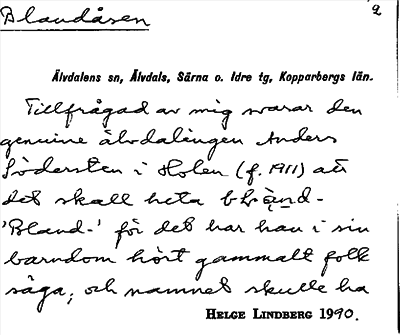 Blandåsen
2
Älvdalens sn, Älvdals, Särna o. Idre tg, Kopparbergs län.
Tillfrågad av mig svarar den
genuine älvdalingen Anders
Södersten i Holen (f. 1911) att
det skall heta
'Bland-' för det har han i sin
barndom hört gammalt folk
säga; och namnet skulle ha
HELGE LINDBERG 1990.